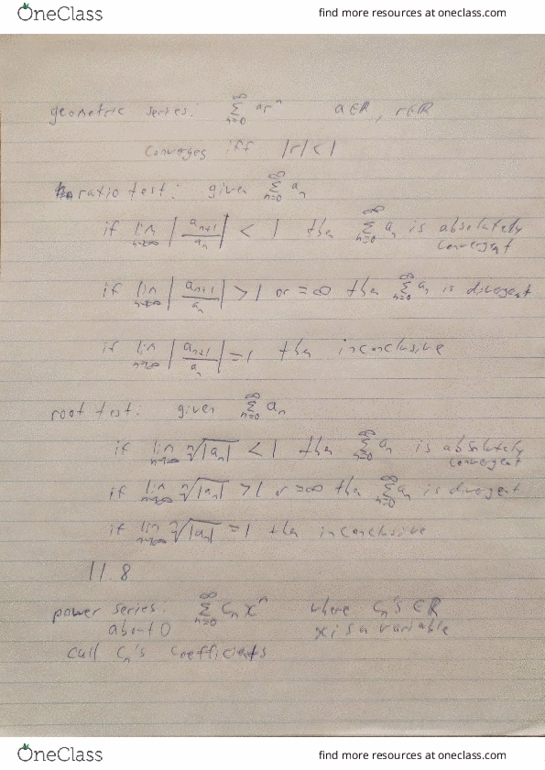 OneClass
find more resources at oneclass.com
geometric series: ∞ Σ n=0 ar^n a∈ℝ, r∈ℝ
converges iff |r|<1
ratio test: given ∞ Σ n=0 a_n
if lim n→∞ |a_{n+1}/a_n| < 1 then ∞ Σ n=0 a_n is absolutely
convergent
if lim n→∞ |a_{n+1}/a_n| > 1 or =∞ then ∞ Σ n=0 a_n is divergent
if lim n→∞ |a_{n+1}/a_n| = 1 then inconclusive
root test: given ∞ Σ n=0 a_n
if lim n→∞ ⁿ√|a_n| < 1 then ∞ Σ n=0 a_n is absolutely
convergent
if lim n→∞ ⁿ√|a_n| > 1 or =∞ then ∞ Σ n=0 a_n is divergent
if lim n→∞ ⁿ√|a_n| = 1 then inconclusive
11.8
power series: ∞ Σ n=0 c_n x^n where c_n's ∈ℝ
about 0 x is a variable
call c_n's coefficients
OneClass
find more resources at oneclass.com